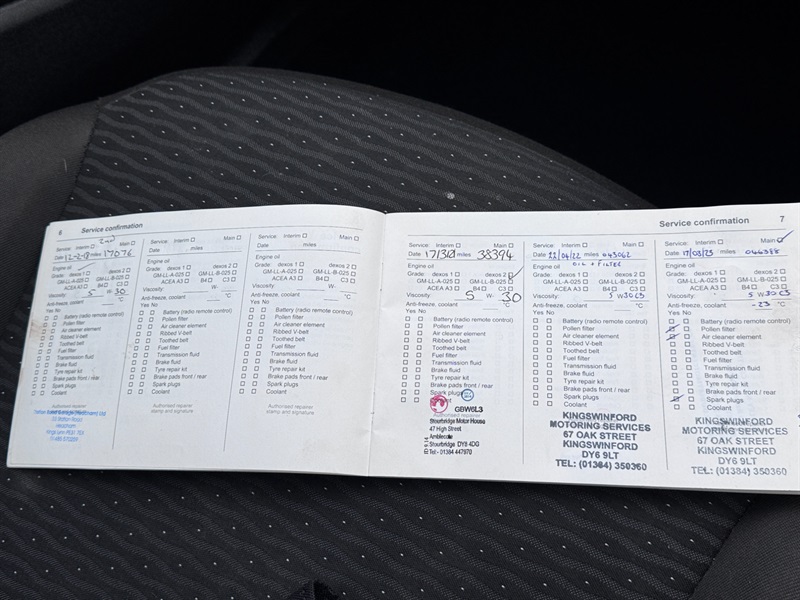 6 Service confirmation
Service: Interim ☐ 2nd Main ☐
Date 12-2-18 miles 17076
Engine oil
Grade: dexos 1 ☐ dexos 2 ☐
GM-LL-A-025 ☐ GM-LL-B-025 ☐
ACEA A3 ☐ B4 ☐ C3 ☐
Viscosity: 5 W 30
Anti-freeze, coolant °C
Yes No
Battery (radio remote control)
Pollen filter
Air cleaner element
Ribbed V-belt
Toothed belt
Fuel filter
Transmission fluid
Brake fluid
Tyre repair kit
Brake pads front / rear
Spark plugs
Coolant
Service: Interim ☐ Main ☐
Date miles
Engine oil
Grade: dexos 1 ☐ dexos 2 ☐
GM-LL-A-025 ☐ GM-LL-B-025 ☐
ACEA A3 ☐ B4 ☐ C3 ☐
Viscosity: W-
Anti-freeze, coolant °C
Yes No
Battery (radio remote control)
Pollen filter
Air cleaner element
Ribbed V-belt
Toothed belt
Fuel filter
Transmission fluid
Brake fluid
Tyre repair kit
Brake pads front / rear
Spark plugs
Coolant
Authorised repairer
stamp and signature
Service: Interim ☐ Main ☐
Date miles
Engine oil
Grade: dexos 1 ☐ dexos 2 ☐
GM-LL-A-025 ☐ GM-LL-B-025 ☐
ACEA A3 ☐ B4 ☐ C3 ☐
Viscosity: W-
Anti-freeze, coolant °C
Yes No
Battery (radio remote control)
Pollen filter
Air cleaner element
Ribbed V-belt
Toothed belt
Fuel filter
Transmission fluid
Brake fluid
Tyre repair kit
Brake pads front / rear
Spark plugs
Coolant
Authorised repairer
stamp and signature
Service confirmation 7
Service: Interim ☐ Main ☐
Date miles 38394
Engine oil
Grade: dexos 1 ☐ dexos 2 ☐
GM-LL-A-025 ☐ GM-LL-B-025 ☐
ACEA A3 ☐ B4 ☐ C3 ☐
Viscosity: 5 W- 30
Anti-freeze, coolant °C
Yes No
Battery (radio remote control)
Pollen filter
Air cleaner element
Ribbed V-belt
Toothed belt
Fuel filter
Transmission fluid
Brake fluid
Tyre repair kit
Brake pads front / rear
Spark plugs
GBW6L3
Stourbridge Motor House
47 High Street
Amblecote
Stourbridge DY8 4DG
Tel - 01384 447970
Service: Interim ☐ Main ☐
Date 22/04/22 miles 043062
Engine oil OIL + FILTER
Grade: dexos 1 ☐ dexos 2 ☐
GM-LL-A-025 ☐ GM-LL-B-025 ☐
ACEA A3 ☐ B4 ☐ C3 ☐
Viscosity: 5 W 30 C3
Anti-freeze, coolant °C
Yes No
Battery (radio remote control)
Pollen filter
Air cleaner element
Ribbed V-belt
Toothed belt
Fuel filter
Transmission fluid
Brake fluid
Tyre repair kit
Brake pads front / rear
Spark plugs
Coolant
KINGSWINFORD
MOTORING SERVICES
67 OAK STREET
KINGSWINFORD
DY6 9LT
TEL: (01384) 350360
Service: Interim ☐ Main ☐
Date 17/03/23 miles 046388
Engine oil
Grade: dexos 1 ☐ dexos 2 ☐
GM-LL-A-025 ☐ GM-LL-B-025 ☐
ACEA A3 ☐ B4 ☐ C3 ☐
Viscosity: 5 W 30 C3
Anti-freeze, coolant -23 °C
Yes No
Battery (radio remote control)
Pollen filter
Air cleaner element
Ribbed V-belt
Toothed belt
Fuel filter
Transmission fluid
Brake fluid
Tyre repair kit
Brake pads front / rear
Spark plugs
Coolant
KINGSWINFORD
MOTORING SERVICES
67 OAK STREET
KINGSWINFORD
DY6 9LT
TEL: (01384) 350360